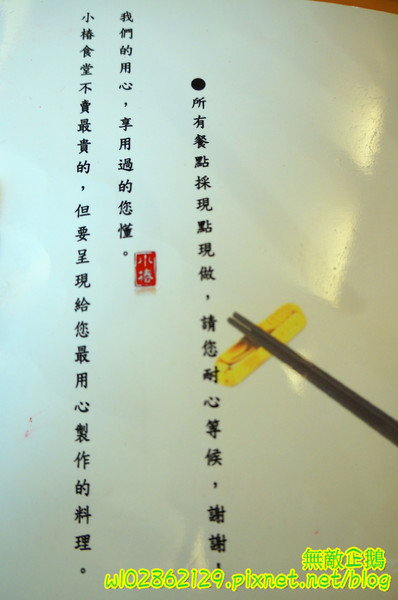 ●所有餐點採現點現做，請您耐心等候，謝謝，
我們的用心，享用過的您懂。
小椿食堂不賣最貴的，但要呈現給您最用心製作的料理。
小椿
無敵企鵝
w102862129.pixnet.net/blog